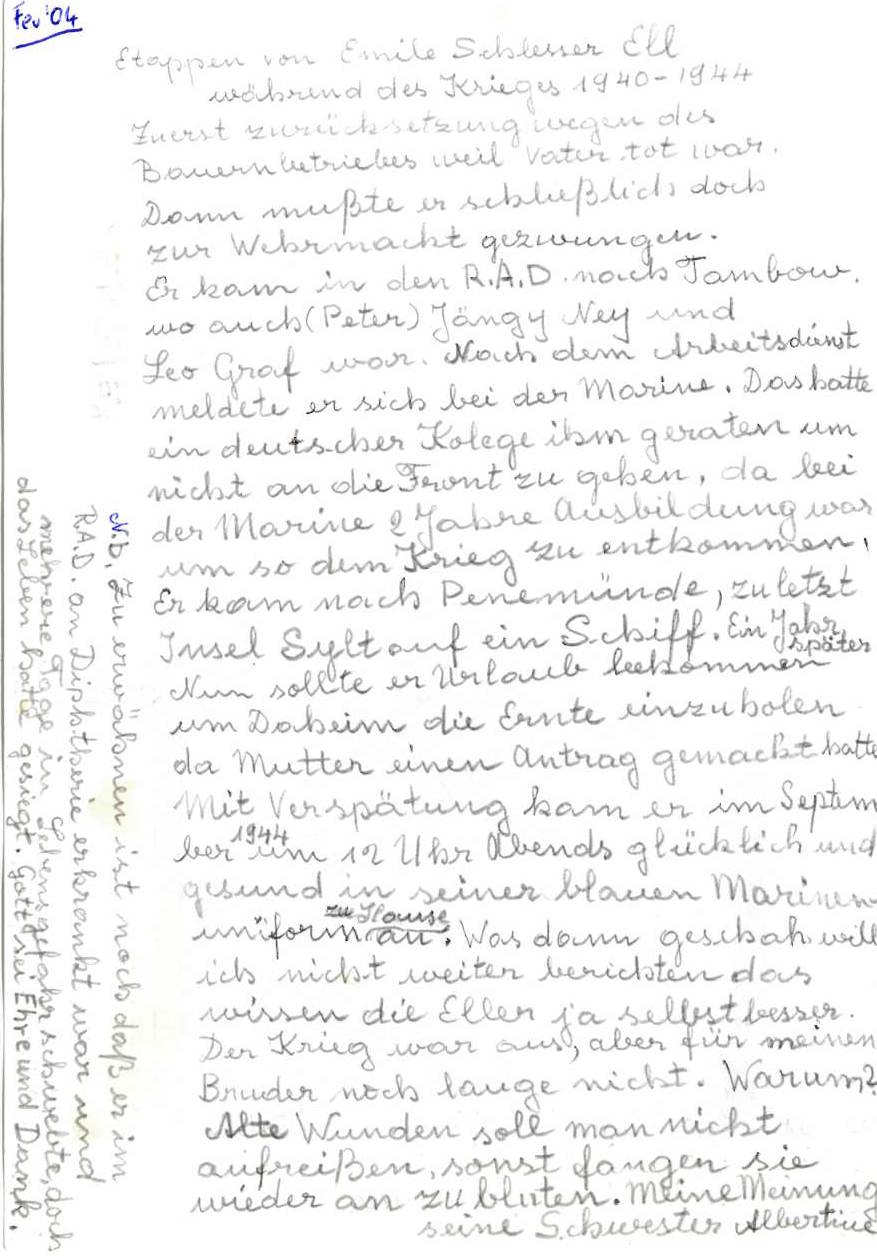 Fev '04
Etappen von Emile Schlesser Ell
während des Krieges 1940-1944
Zuerst zurücksetzung wegen des
Bauernbetriebes weil Vater tot war.
Dann mußte er schließlich doch
zur Wehrmacht gezwungen.
Er kam in den R.A.D. nach Tambow.
wo auch (Peter) Jängy Ney und
Leo Graf war. Nach dem Arbeitsdienst
meldete er sich bei der Marine. Das hatte
ein deutscher Kolege ihm geraten um
nicht an die Front zu gehen, da bei
der Marine 2 Jahre Ausbildung war
um so dem Krieg zu entkommen,
Er kam nach Penemünde, zuletzt
Insel Sylt auf ein Schiff. Ein Jahr
später
Nun sollte er Urlaub bekommen
um Daheim die Ernte einzuholen
da Mutter einen Antrag gemacht hatte
Mit Verspätung kam er im Septem
ber 1944 um 12 Uhr Abends glücklich und
gesund in seiner blauen Marinen
uniform zu Hause an. Was dann geschah will
ich nicht weiter berichten das
wissen die Eller ja selbst besser.
Der Krieg war aus, aber für meinen
Bruder noch lange nicht. Warum?
Alte Wunden soll man nicht
aufreißen, sonst fangen sie
wieder an zu bluten. Meine Meinung
seine Schwester Albertine
N.b. Zu erwähnen ist noch daß er im
R.A.D. an Diphtherie erkrankt war und
mehrere Tage in Lebensgefahr schwebte, doch
das Leben hatte gesiegt. Gott sei Ehre und Dank.